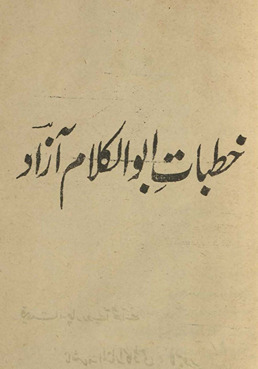 خطباتِ ابوالکلام آزاد